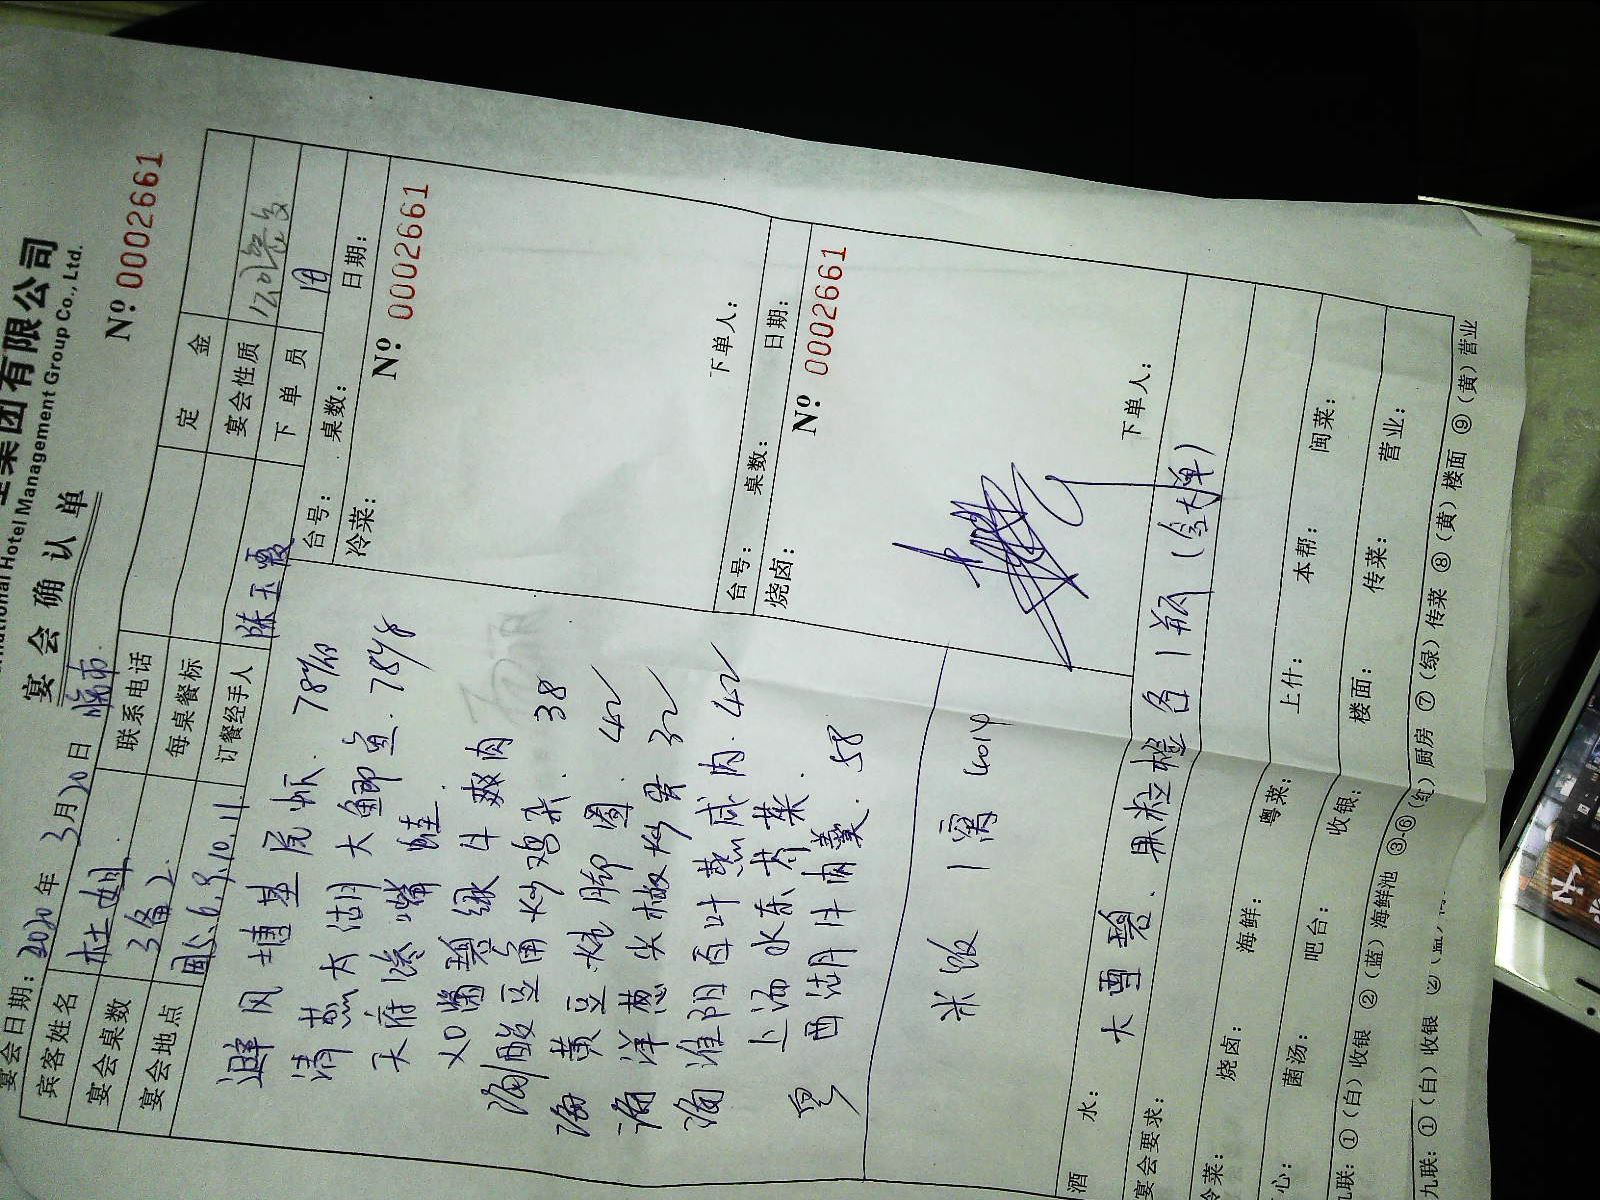 集团有限公司
International Hotel Management Group Co., Ltd.
宴会确认单
№ 0002661
宴会日期: 2020年 3月20日 晚市
定金
宾客姓名 杜姐 联系电话
宴会性质
宴会桌数 3备2 每桌餐标
下单员
宴会地点 6.8.10.11 订餐经手人 陈玉霞
台号: 桌数: 日期:
避风塘基尾虾 78
清蒸太湖大鲫鱼 78
天府嘴蛙
如酱碧绿牛爽肉
酸豆角炒鸡杂 38
黄豆炖脚圈 42
洋葱尖椒炒蛋 32
淮阳百叶蒸咸肉 42
上汤水东芥菜
西湖牛肉羹 58
米饭 1
冷菜:
№ 0002661
下单人:
台号: 桌数: 日期:
烧卤:
№ 0002661
下单人:
酒水: 大雪碧、果粒橙各1瓶(含大单)
宴会要求:
冷菜: 烧卤: 海鲜: 粤菜: 上什: 本帮: 闽菜:
心: 菌汤: 吧台: 收银: 楼面: 传菜: 营业:
联: ①(白)收银 ②(蓝)海鲜池 ③-⑥(红)厨房 ⑦(绿)传菜 ⑧(黄)楼面 ⑨(黄)营业
九联: ①(白)收银 ②